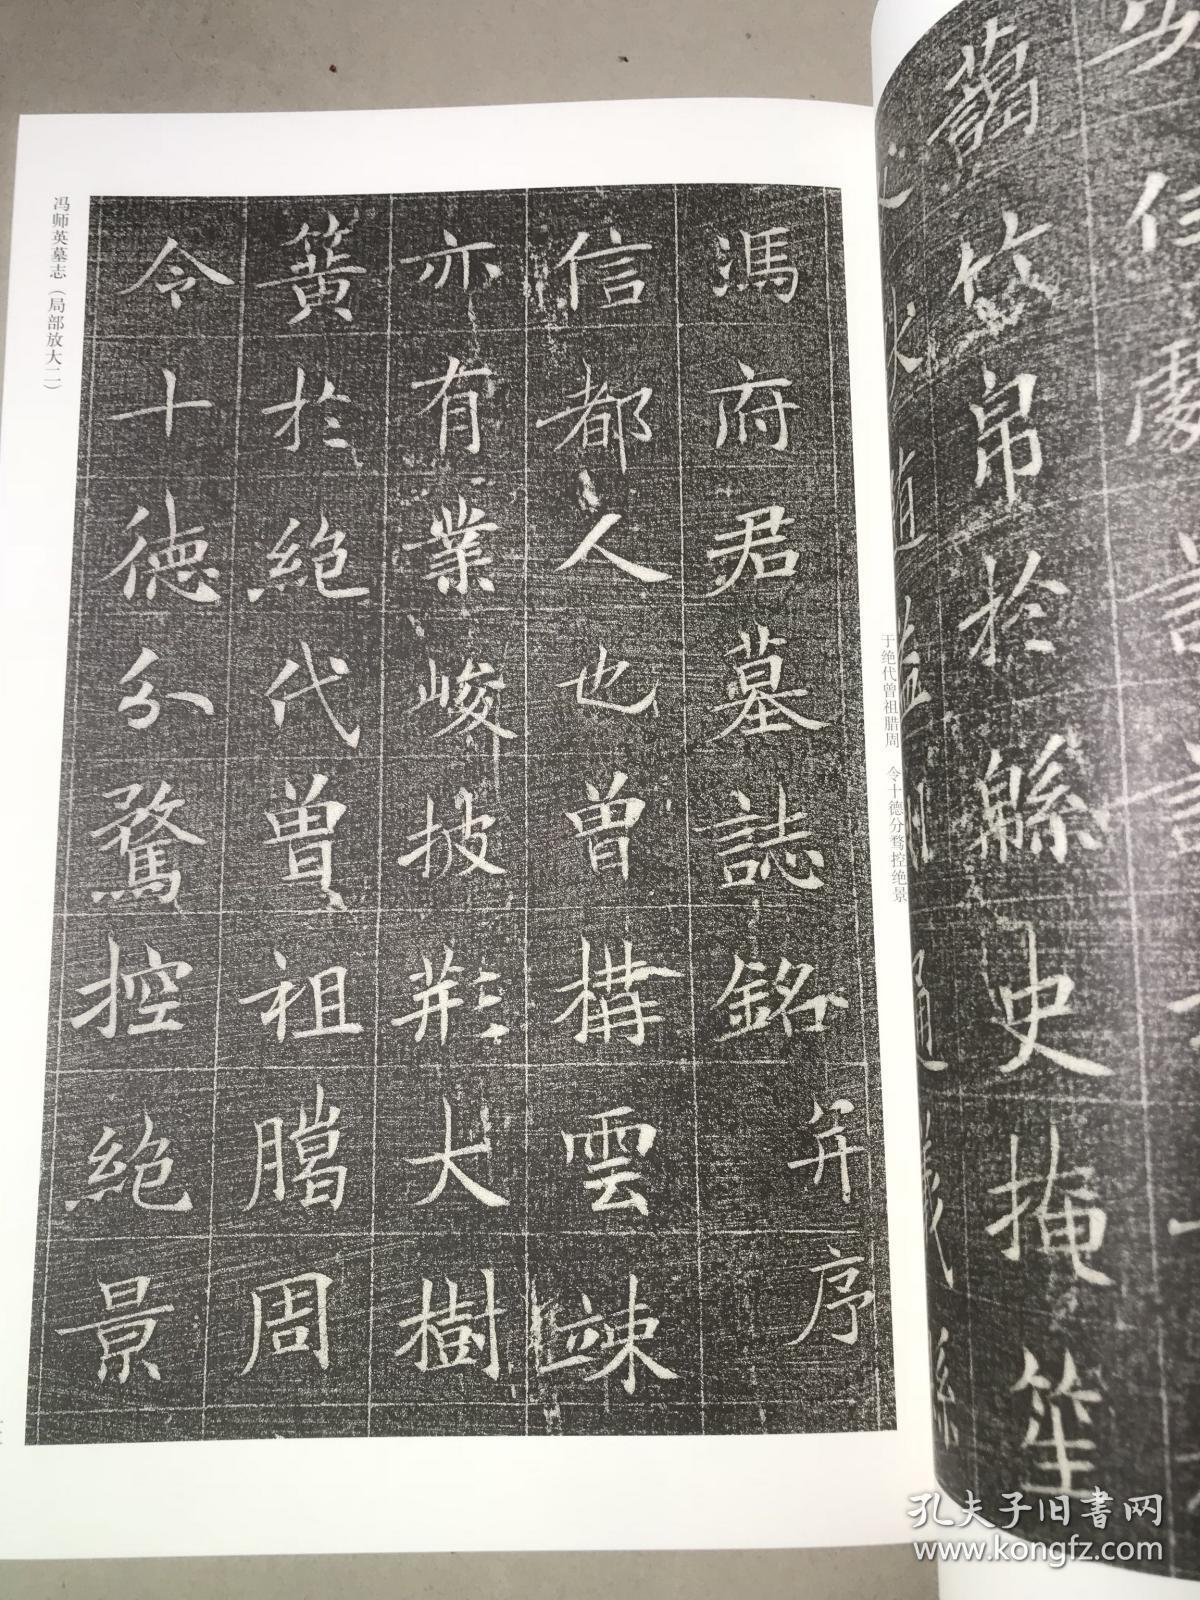 馮府君墓誌銘并序
信都人也曾構雲竦
亦有業峻披荊大樹
簧於絕代曾祖臈周
令十德分騖控絕景
冯师英墓志（局部放大二）
于绝代曾祖腊周　令十德分骛控绝景
竹帛於緜史掩笙
孔夫子旧书网
www.kongfz.com